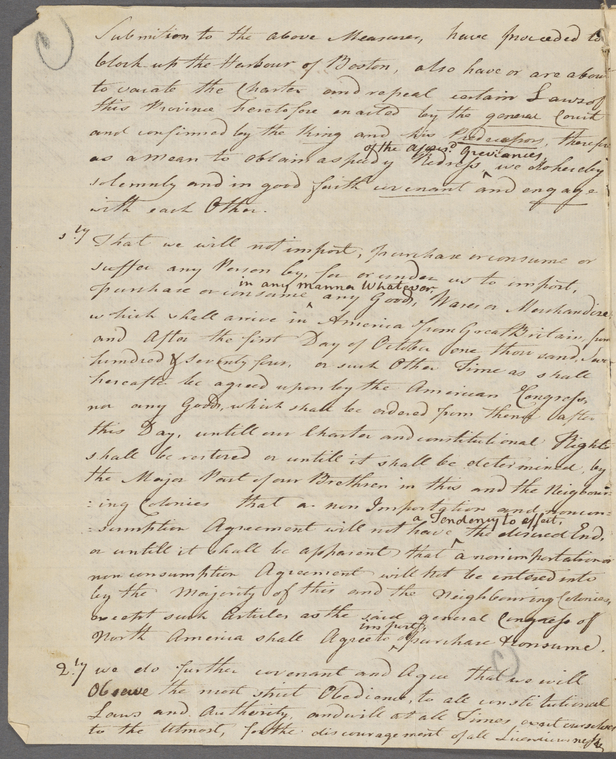 Submition to the above Measures, have proceeded to
block up the Harbour of Boston, also have or are about
to vacate the Charter and repeal certain Laws of
this Province heretofore enacted by the general Court
and confirmed by the King and his Predecessors, therefore
of the aforsd. Greviances,
as a mean to obtain a speedy Redress we do hereby
solemnly and in good faith covenant and engage
with each Other.
1.ly That we will not import, purchase or consume or
suffer any Person by, for or under us to import,
in any manner Whatever
purchase or consume any Goods, Wares or Merchandize
which shall arrive in America from Great Britain, from
and After the first Day of October one thousand, seven
hundred & seventy four, or such Other Time as shall
hereafter be agreed upon by the American Congress,
nor any Goods, which shall be ordered from thence after
this Day, untill our Charter and constitutional Rights
shall be restored or untill it shall be determined, by
the Major Part of our Brethren in this and the Neighbour
=ing Colonies that a non Importation and noncon=
=sumption Agreement will not have the desired End,
a Tendency to effect,
or untill it shall be apparent that a nonimportation
non consumption Agreement will not be entered into
by the Majority of this and the Neighbouring Colonies,
except such Articles as the said general Congress of
import,
North America shall Agree to purchase & consume.
2.ly we do further covenant and Agree that we will
Observe the most strict Obedience, to all constitutional
Laws and Authority, and will at all Times, exert ourselves
to the Utmost, for the discouragement of all Licentiousness,